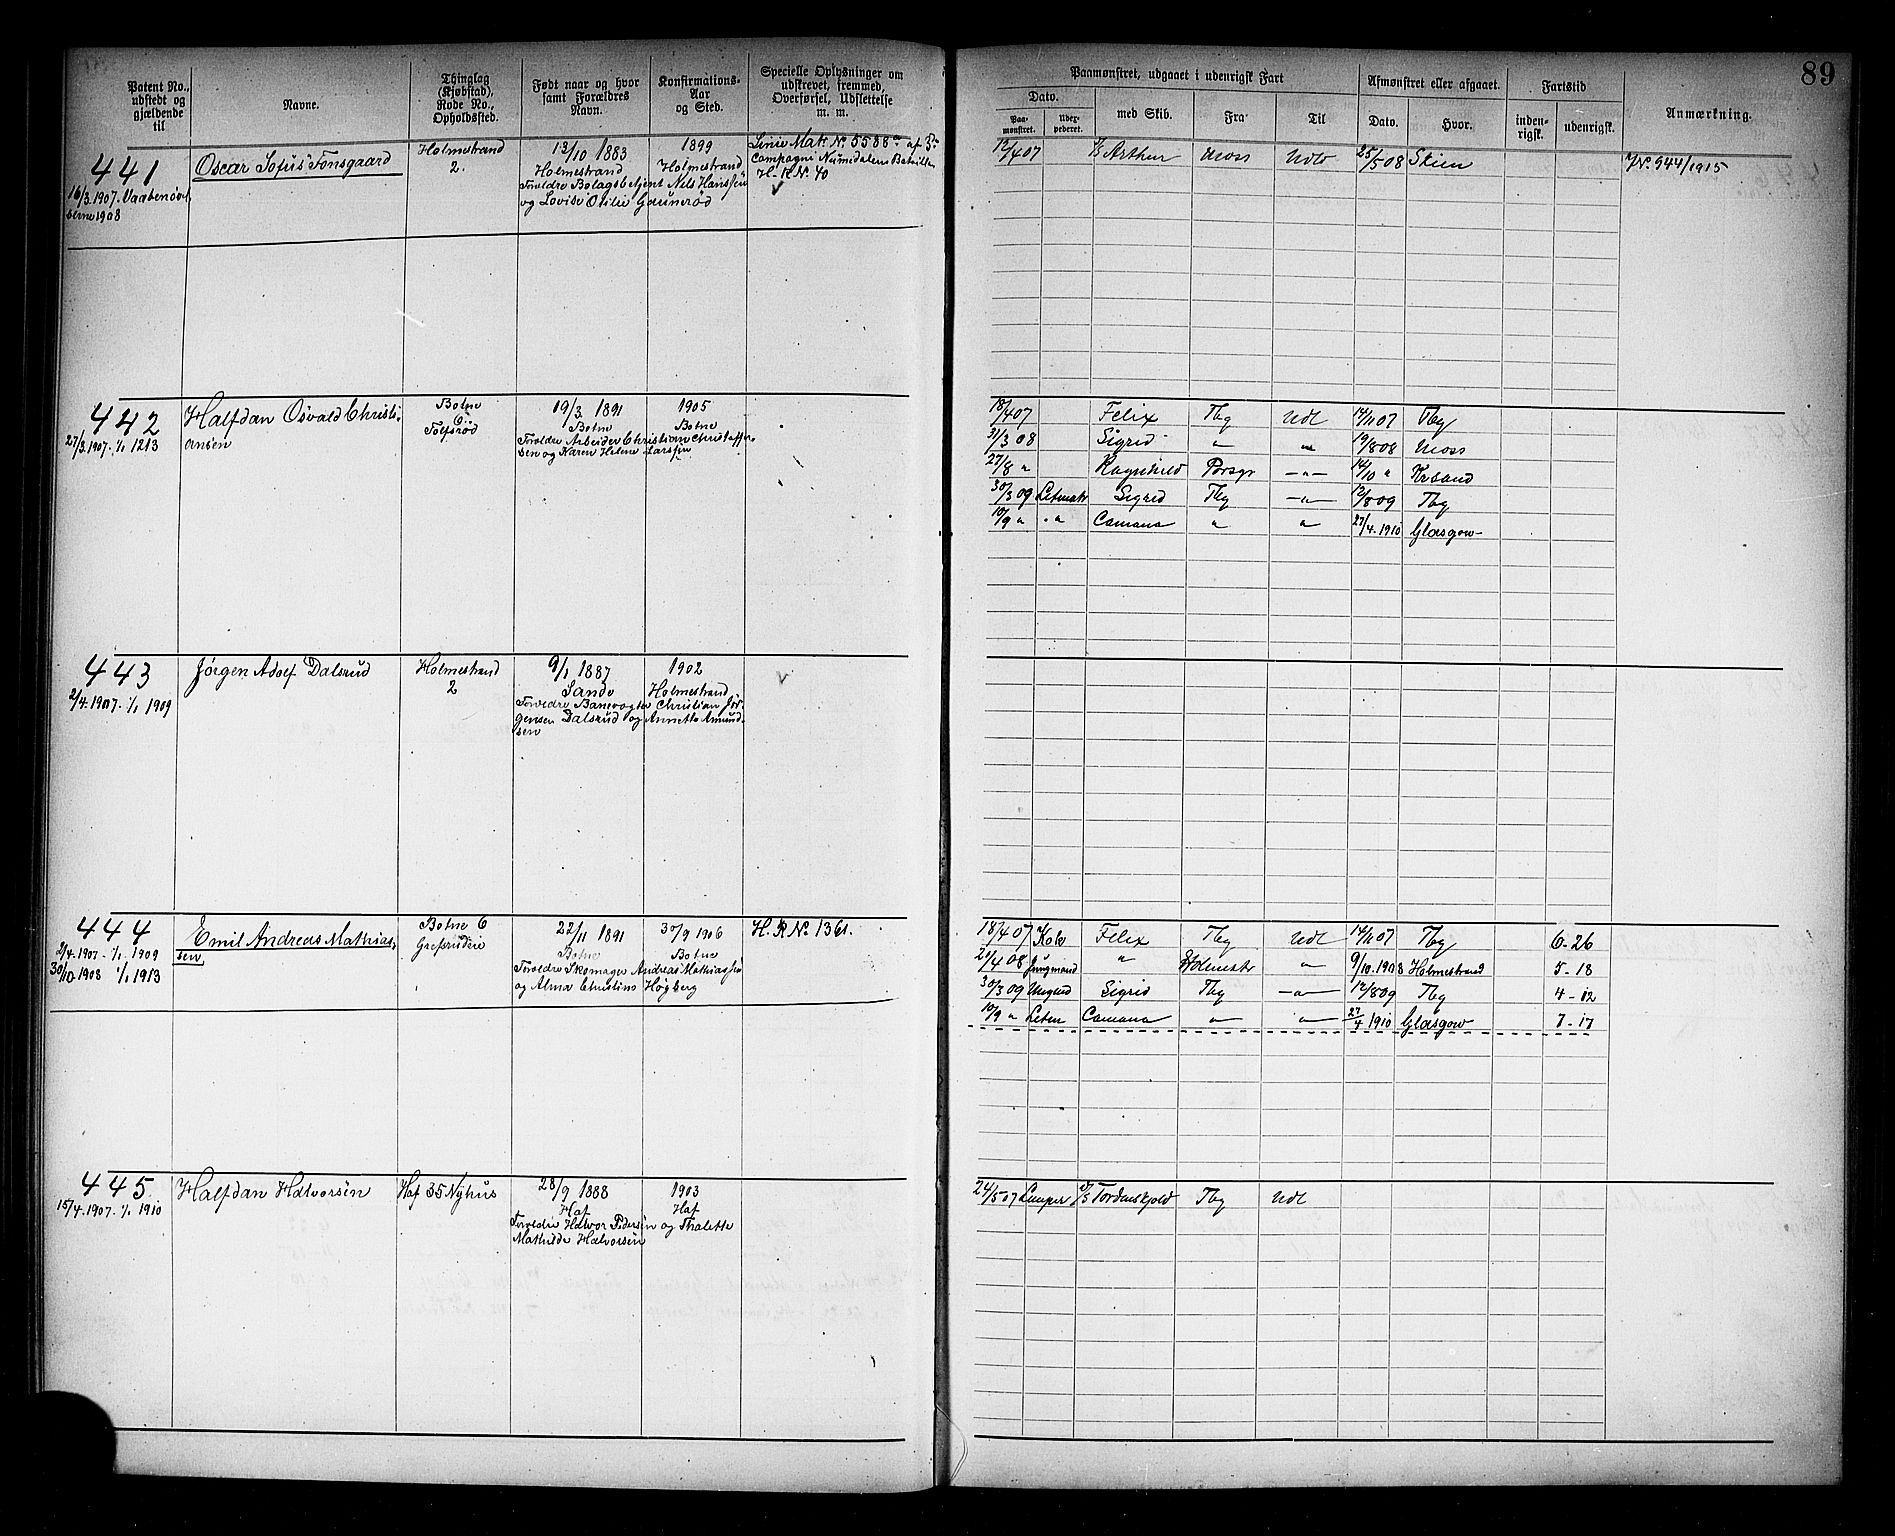 89
Patent No., udstedt og gjældende til
Navne.
Thinglag (Kjøbstad), Rode No., Opholdssted.
Født naar og hvor samt Forældres Navn.
Konfirmations-Aar og Sted.
Specielle Oplysninger om udskrevet, fremmed, Overførsel, Udslettelse m. m.
Paamønstret, udgaaet i udenrigsk Fart
Dato.
Paa-mønstret.
Udex-pederet.
med Skib.
Fra
Til
Afmønstret eller afgaaet.
Dato.
Hvor.
Fartstid
inden-rigsk.
udenrigsk.
Anmærkning.
441
16/3.1907.
1908
Oscar Sofus Tonsgaard
Holmestrand
2.
13/10 1883
Holmestrand
Forældre Bolagsbetjent Nils Hanssen
og Lovise Otilie
1899
Holmestrand
Linie Mak. No 5588 af 3
Compagni Numedalens Bataillon
H. R No. 40
12/4 07 Arthur Moss Udl 25/5 08 Skien
JNo. 944/1915
442
27/3.1907. 1/1 1213
Halfdan Osvald Christi-
ansen
Botne
6
Tolfsrød
19/3 1891
Botne
Forældre Arbeider Christian Christoffer-
sen og Karen Helene Larssen
1905
Botne
18/4 07 Felix Tbg Udl 14/11 07 Tbg
31/3 08 Sigrid " " 19/8 08 Moss
27/8 " Ragnhild Porsgr -"- 14/10 " Krsand
30/3 09 Letmatr Sigrid Tbg -"- 12/8 09 Tbg
10/9 " " Camana " " 27/4.1910 Glasgow
443
2/4.1907. 1/1 1909
Jörgen Adolf Dalsrud
Holmestrand
2
9/1 1887
Sande
Forældre Banevogter Christian Jör-
gensen Dalsrud og Annette Amund-
sen
1902
Holmestrand
444
2/4.1907. 1/1 1909
30/10.1908 1/1 1913
Emil Andreas Mathias-
sen
Botne 6
Grefsrudeie
22/11 1891
Botne
Forældre Skomager Andreas Mathiassen
og Alma Christine Høgberg
30/9 1906
Botne
H. R No. 1361.
18/4 07 Kok Felix Tbg Udl 14/11 07 Tbg 6-26
21/4 08 Jungmand " Holmestr " 9/10.1908 Holmestrand 5-18
30/3 09 Sigrid Tbg -"- 12/8 09 Tbg 4-12
10/9 " Camana " " 27/4 1910 Glasgow 7-17
445
15/4.1907. 1/1 1910
Halfdan Halvorsen
Haf 35 Nyhus
28/9 1888
Haf
Forældre Halvor Pedersen og Thalette
Mathilde Halvorsen
1903
Haf
24/5 07 Lemper Tordenskjold Tbg Udl